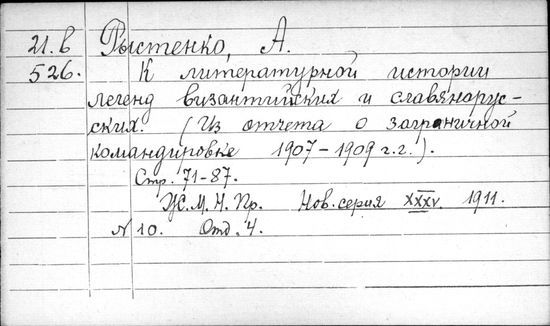 21.в Рыстенко, А.
526. К литературной истории
легенд византийских и славянорус-
ских. (Из отчета о заграничной
командировке 1907-1909 г.г.).
Стр. 71-87.
Ж.М.Н.Пр. Нов. серия XXXV. 1911.
№ 10. Отд. 4.